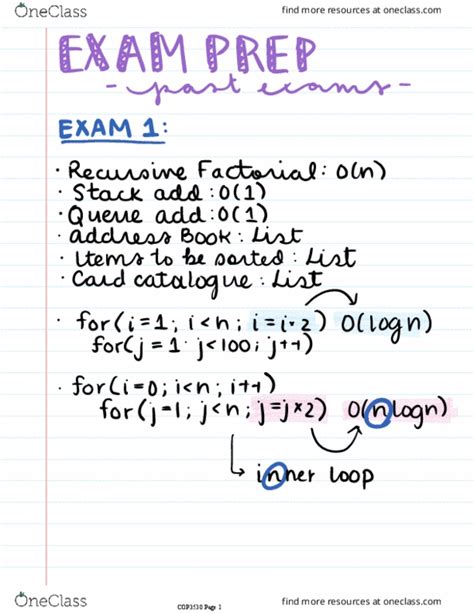 OneClass
find more resources at oneclass.com
EXAM PREP
- past exams -
EXAM 1:
· Recursive Factorial: O(n)
· Stack add: O(1)
· Queue add: O(1)
· address Book: List
· Items to be sorted: List
· Card catalogue: List
· for(i=1; i<n; i=i·2) O(logn)
for(j=1 j<100; j++)
· for(i=0; i<n; i++)
for(j=1; j<n; j=j×2) O(nlogn)
↳ inner loop
OneClass
COP3530 Page 1
find more resources at oneclass.com